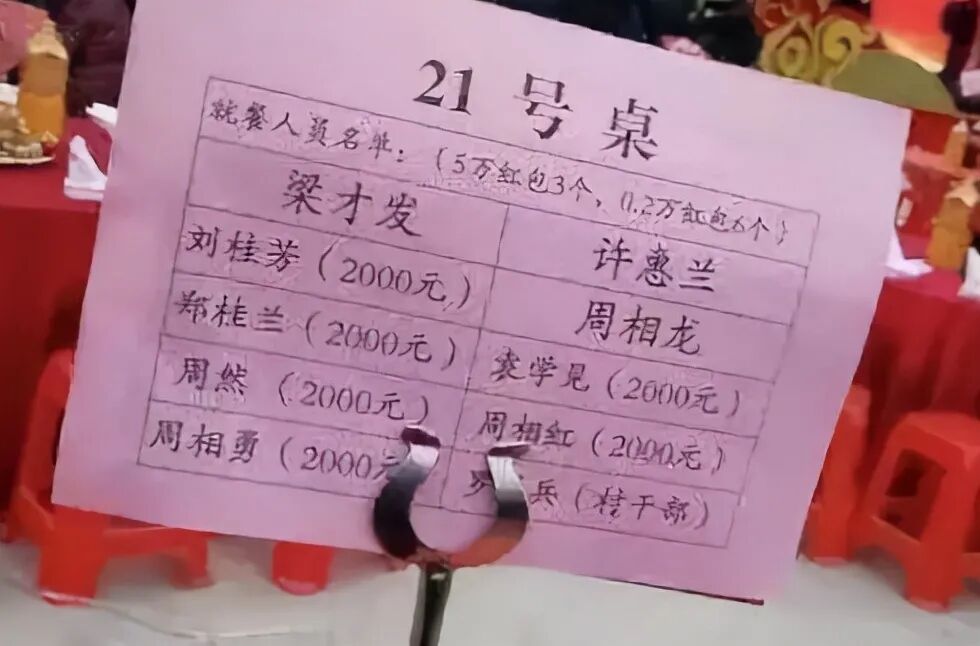 21号桌
就餐人员名单：（5万红包3个，0.2万红包6个）
梁才发 许惠兰
刘桂芳（2000元） 周相龙
郑桂兰（2000元） 袁学见（2000元）
周然（2000元） 周相红（2000元）
周相勇（2000元 兵（村干部）